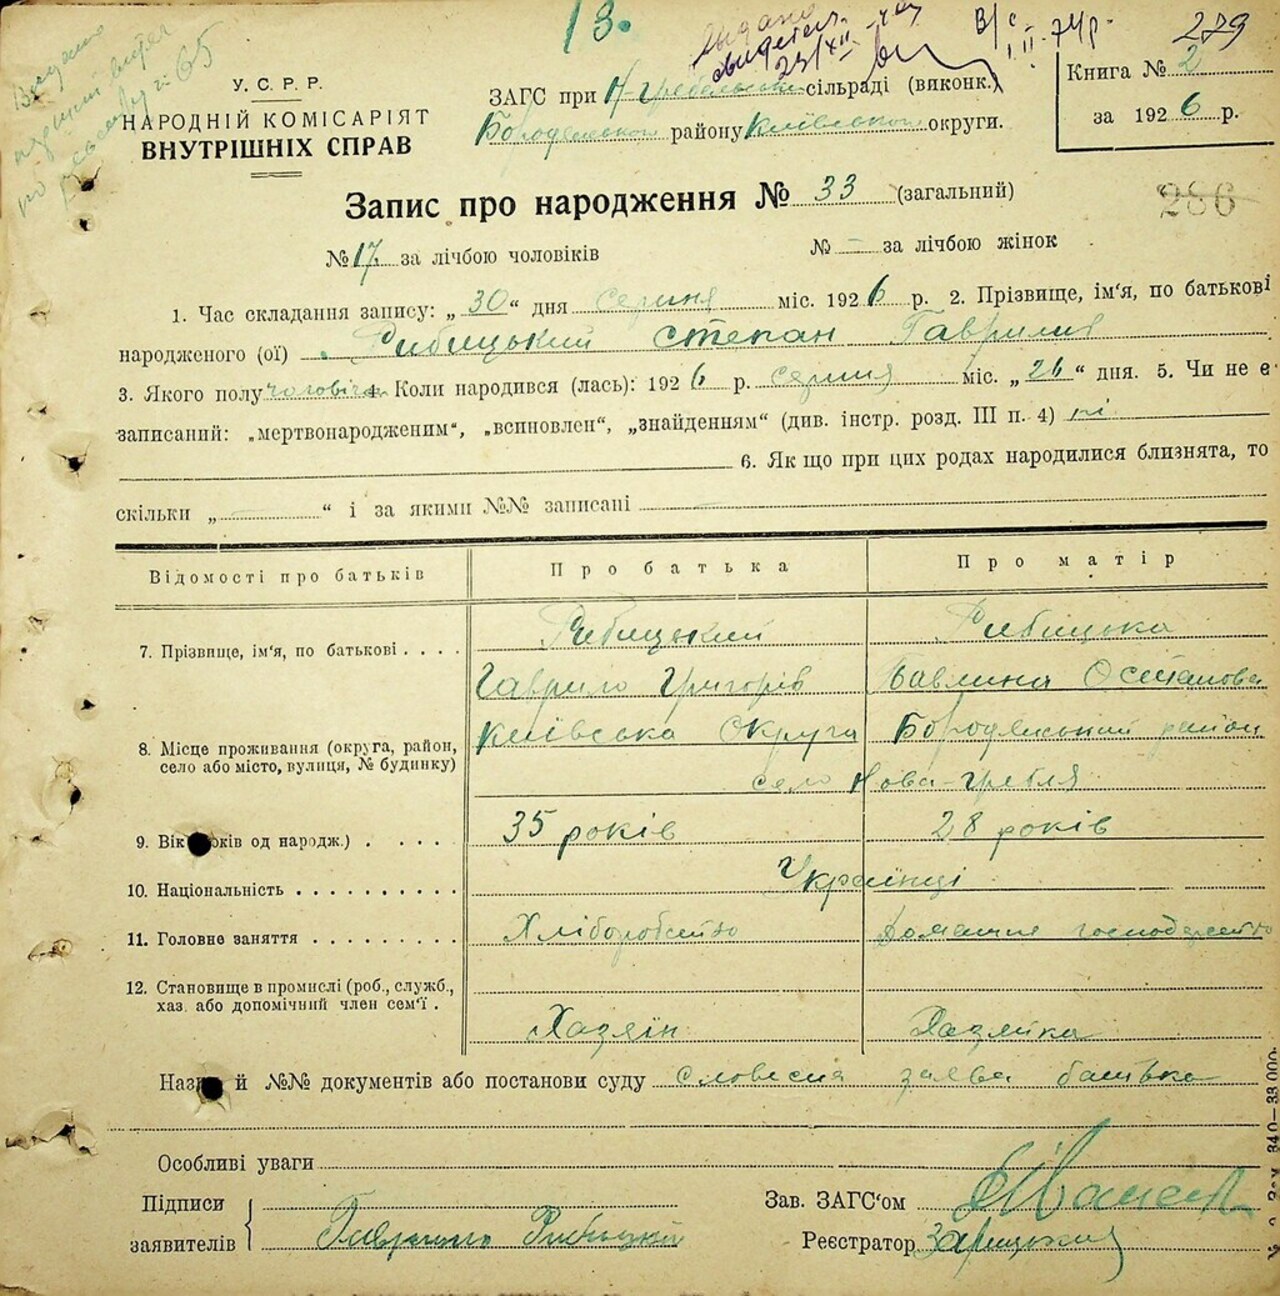 13.
279
В/с
1. II. 74р.
У. С. Р. Р.
НАРОДНІЙ КОМІСАРІЯТ
ВНУТРІШНІХ СПРАВ
ЗАГС при Н-Гребельській сільраді (виконк.)
Бородянського району Київської округи.
Книга № 2
за 1926 р.
Запис про народження № 33 (загальний)
286
№ 17. за лічбою чоловіків № — за лічбою жінок
1. Час складання запису: „30“ дня серпня міс. 1926 р. 2. Прізвище, ім'я, по батькові
народженого (ої) Рибицький Степан Гаврилів
3. Якого полу чоловіча 4. Коли народився (лась): 1926 р. серпня міс. „26“ дня. 5. Чи не є
записаний: „мертвонародженим“, „всиновлен“, „знайденням“ (див. інстр. розд. III п. 4) ні
6. Як що при цих родах народилися близнята, то
скільки „ — “ і за якими №№ записані —
Відомості про батьків Про батька Про матір
7. Прізвище, ім'я, по батькові . . . . Рибицький Рибицька
Гаврило Григорів Павлина Остапова
8. Місце проживання (округа, район, село або місто, вулиця, № будинку) Київська Округа Бородянський район
село Нова-Гребля
9. Вік років од народж.) . . . . . 35 років 28 років
10. Національність . . . . . . . . . . Українці
11. Головне заняття . . . . . . . . . Хліборобство Домашнє господарство
12. Становище в промислі (роб., служб.,
хаз. або допомічний член сем'ї . Хазяїн Хазяйка
Назв й №№ документів або постанови суду словесна заява батька
Особливі уваги
Підписи
заявителів Гаврило Рибицький
Зав. ЗАГС'ом
Реєстратор Зарицький